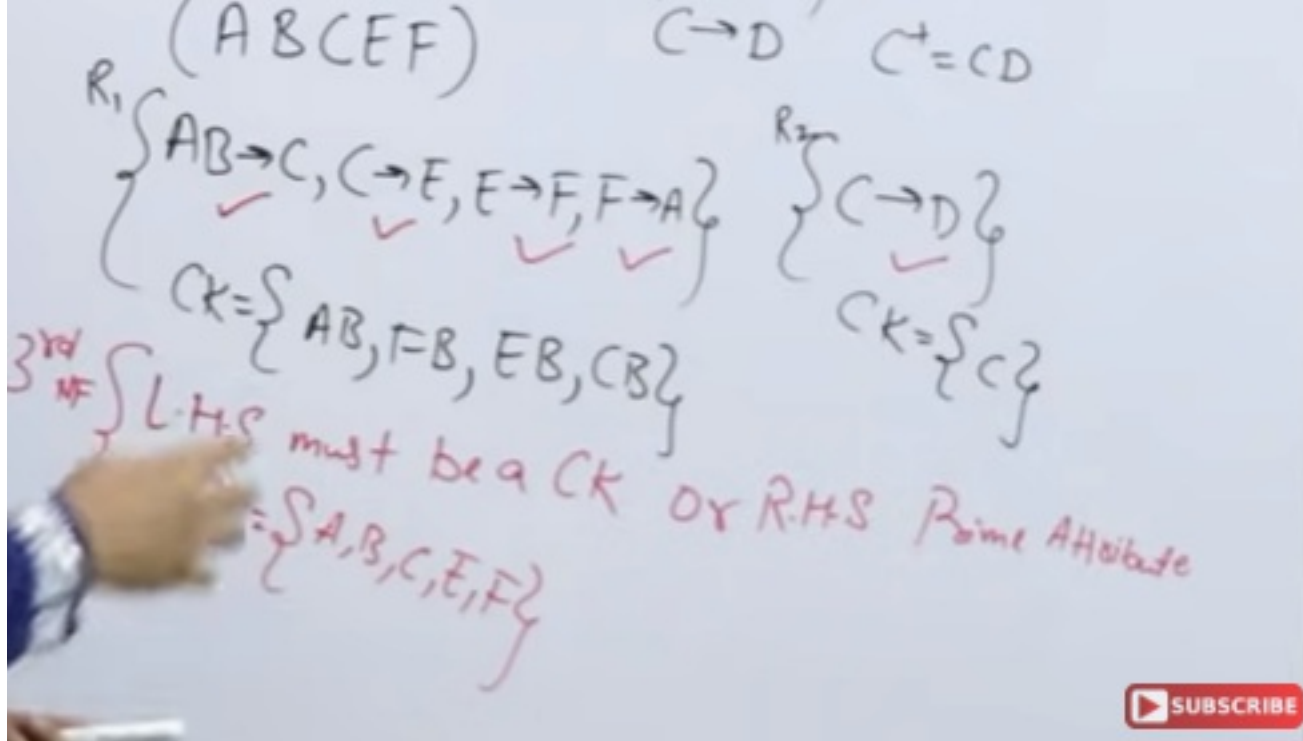 (ABCEF) C→D C⁺=CD
R₁ {AB→C, C→E, E→F, F→A} R₂ {C→D}
CK={AB, FB, EB, CB} CK={C}
3rd NF {L.H.S must be a CK Or R.H.S Prime Attribute
={A,B,C,E,F}
SUBSCRIBE